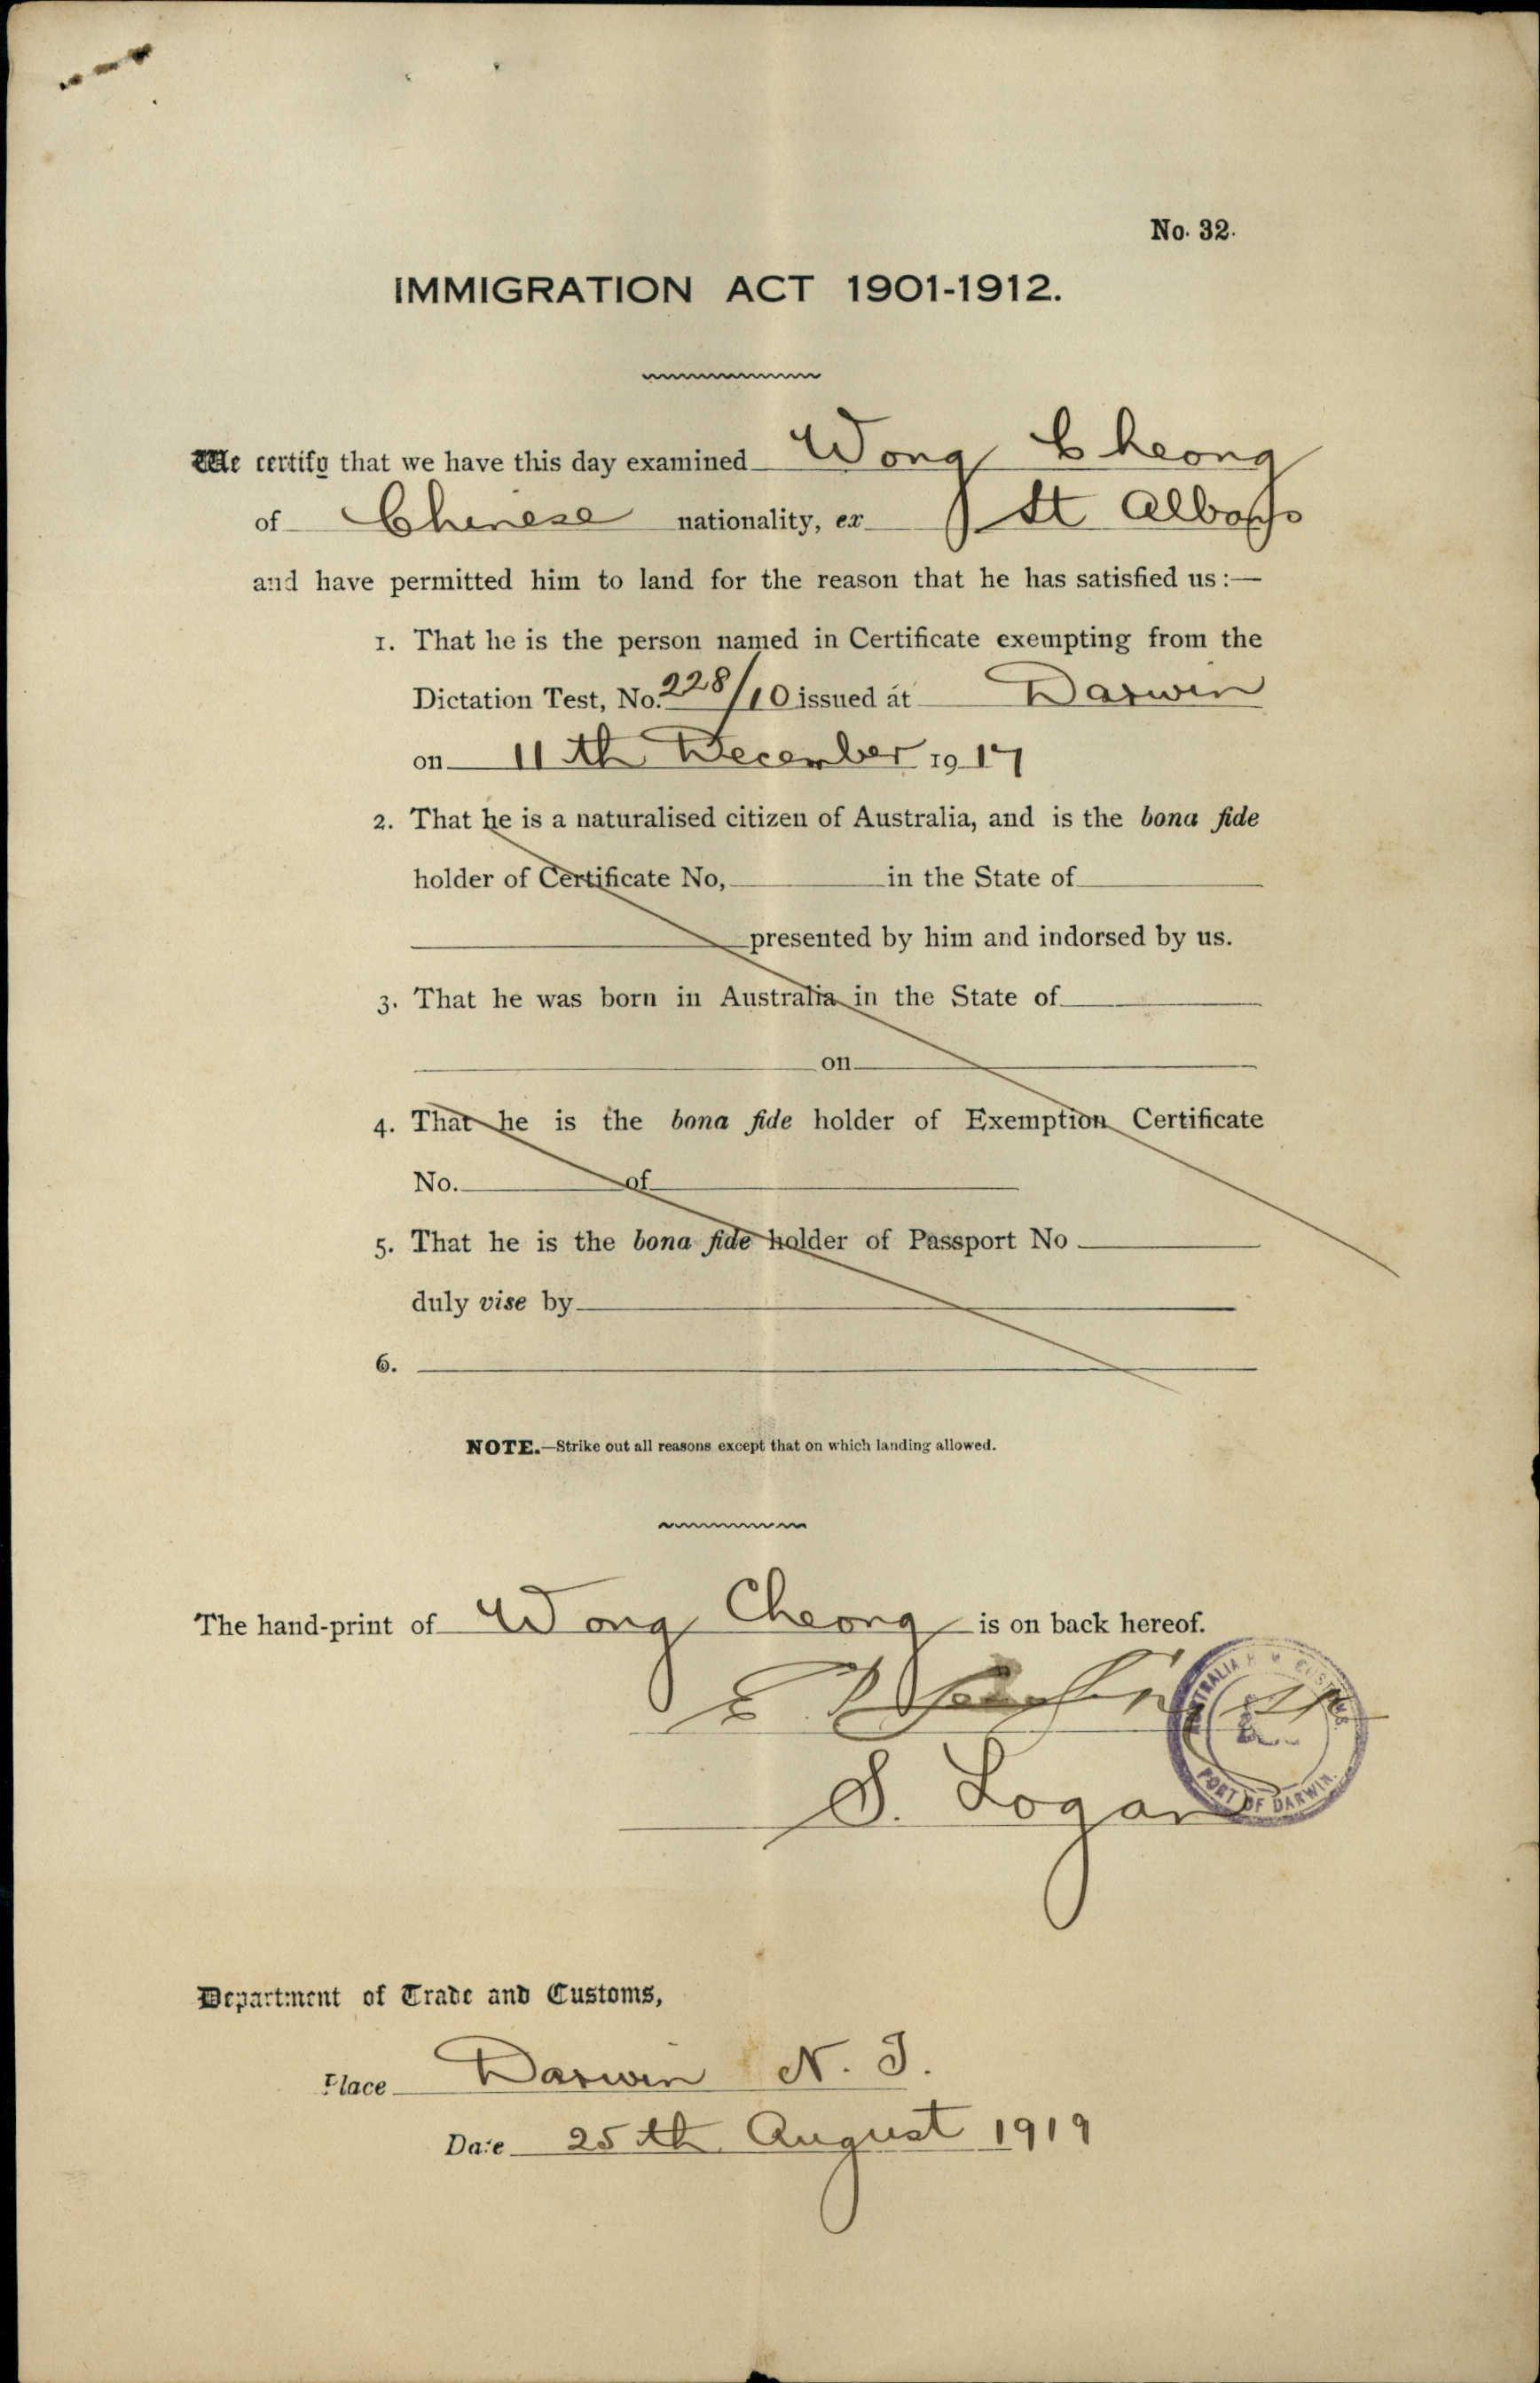 No. 32.
IMMIGRATION ACT 1901-1912.
We certify that we have this day examined Wong Cheong
of Chinese nationality, ex St Albans
and have permitted him to land for the reason that he has satisfied us:—
1. That he is the person named in Certificate exempting from the
Dictation Test, No. 228/10 issued at Darwin
on 11th December 1917
2. That he is a naturalised citizen of Australia, and is the bona fide
holder of Certificate No, in the State of
presented by him and indorsed by us.
3. That he was born in Australia in the State of
on
4. That he is the bona fide holder of Exemption Certificate
No. of
5. That he is the bona fide holder of Passport No
duly vise by
6.
NOTE.—Strike out all reasons except that on which landing allowed.
The hand-print of Wong Cheong is on back hereof.
AUSTRALIA H. M. CUSTOMS.
PORT OF DARWIN.
S. Logan
Department of Trade and Customs,
Place Darwin N. T.
Date 25th August 1919